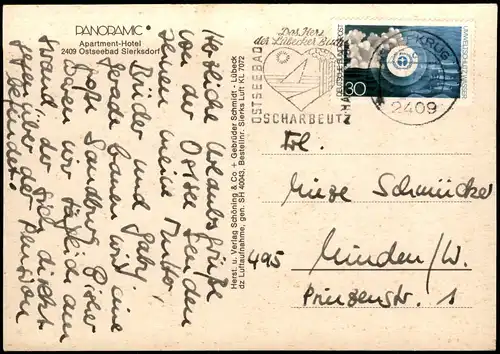 PANORAMIC
Apartment-Hotel
2409 Ostseebad Sierksdorf
Herzliche Urlaubsgrüße
von der Ostsee senden
Ihnen meine Mutter,
Brüder und Gaby.
Gerade bauen wir eine
große Sandburg. Bisher
waren wir täglich am
Strand, der sich direkt
gegenüber der Pension
befindet.
Herst. u. Verlag Schöning & Co + Gebrüder Schmidt - Lübeck
dz Luftaufnahme, gen. SH 40043, Bestellnr. Sierks Luft KL 7072
Das Herz
der Lübecker Bucht
OSTSEEBAD
SCHARBEUTZ
HA
KRUG
2409
DEUTSCHE BUNDESPOST
UMWELTSCHUTZ WASSER
30
Frl.
Mieze Schmücker
495 Minden/W.
Prinzenstr. 1